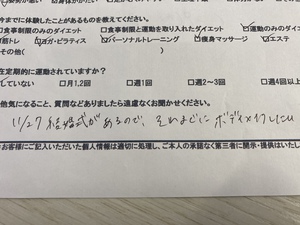 今までに体験したことがあるものを教えてください。
□食事制限のみのダイエット □食事制限と運動を取り入れたダイエット ☑運動のみのダイエット
筋トレ ☑ヨガ・ピラティス ☑パーソナルトレーニング □痩身マッサージ ☑エステ
その他(
在定期的に運動されていますか？
していない □月1,2回 □週1回 □週2～3回 □週4回以上
他気になること、質問などありましたら遠慮なくお聞かせください。
11/27 結婚式があるので、それまでにボディメイクしたい
お客様にご記入いただいた個人情報は適切に処理し、ご本人の承諾なく第三者に開示・提供はいたし